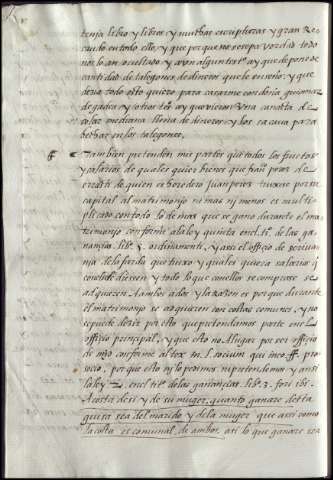 tenia libro y libros y muchas escripturas y gran Re
caudo en todo ello, y que por que no se sepa verdad todo
nos lo an ocultado y a von algunt tpo ay que de poso de
cantidad de talegones de dineros que le enseño; y que
decia todo esto quiero para casarme con doña guiomar
de gadea, y otros tpo ay que vieron Una canasta de
colar mediana llena de dineros y los sacaua para
hechar en los talegones.
Tambien pretenden mis partes que todos los fructos
y salarios de quales quier bienes que
de quien es heredero Juan perez tuuo por su
capital al matrimonio ni mas ni menos es multi
plicado con todo lo demas que se gano durante el ma
trimonio conforme a la ley quinta en el tit. de las ga
nancias. lib. y ordinamento. y assi el officio de scriuan
nia de la farda que tuuo y quales quiera salarios q
con el se diessen y todo lo que con ellos se comprase se
adquieren a ambos a dos y la razon es por que durante
el matrimonio se adquieren con collas comunes, y no
se puede dezir por esto que pretendamos parte en el
officio principal, y que esto no a lugar por ser officio
de mgd conforme al tex. in. l. socium qui in eo. ff. pro
socio, por que esto ni lo pedimos ni pretendemos y ansi
la ley en el tit. de las ganancias lib. 3. fori ibi.
A costa de si y de su muger, quanto ganare desta
guisa sea del marido y de la muger que assi como
la costa es comunal de ambos, asi lo que ganare sea